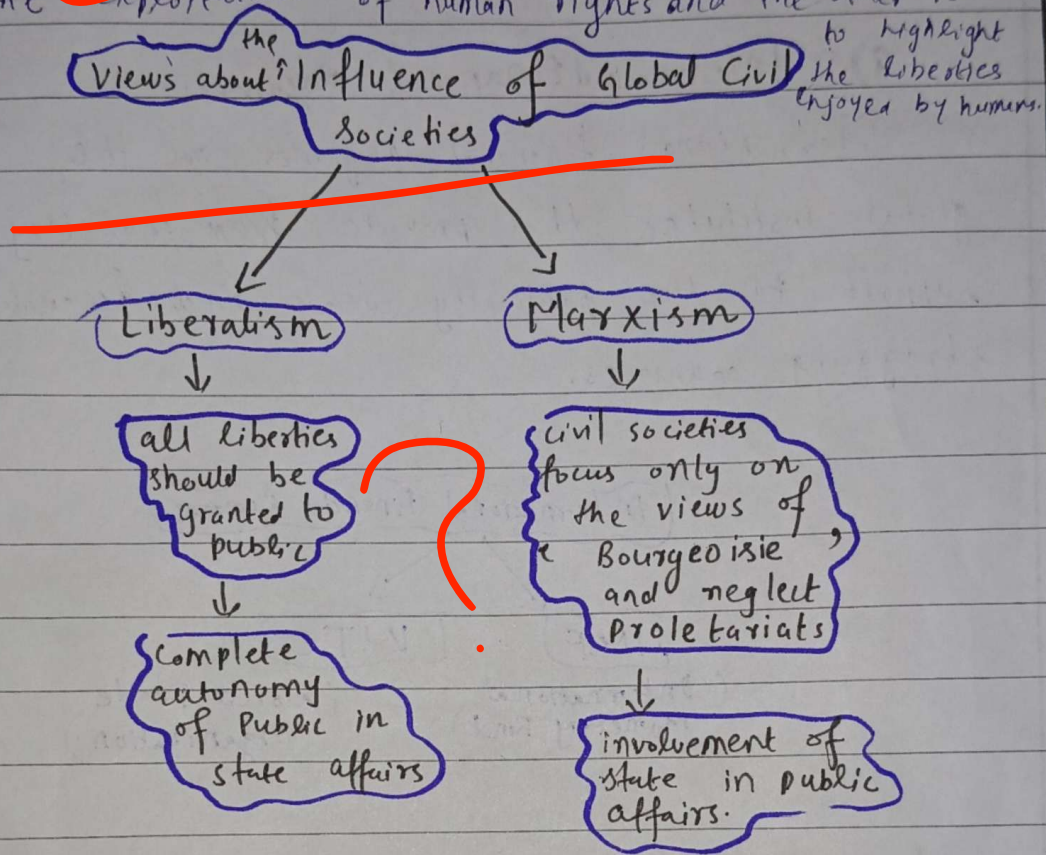 of human rights and the
to highlight
the liberties
enjoyed by humans.
the
Views about Influence of Global Civil
Societies
Liberalism
Marxism
all liberties
should be
granted to
public
complete
autonomy
of Public in
state affairs
civil societies
focus only on
the views of
Bourgeoisie,
and neglect
Proletariats
involvement of
state in public
affairs.
?